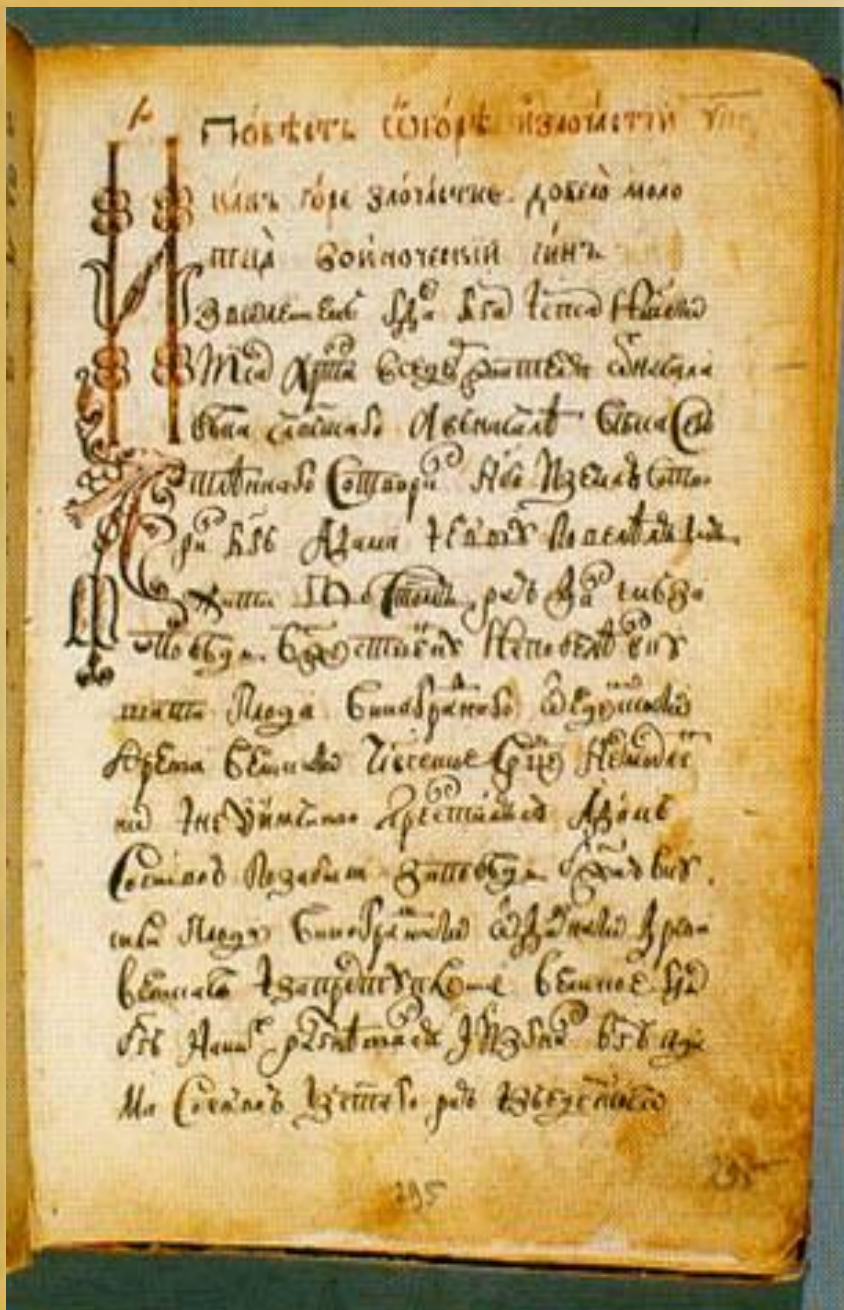 Повѣсть ѡ горѣ и злочастїи
какъ горе злочастие довело моло
тца во иноческїй чинъ
Изволениемъ гда бга и спса нашего
Iса Хрта вседержителя ѿ начала
века человѣческаго А в началѣ века сего
тлѣннаго сотворил небо и землю сотво
рил бгъ Адама и Евву повелѣл имъ
жити во стомъ раю дал им за
поведь бжественну не повелѣл вку
шати плода виноградного ѿ едемского
древа великаго человеческое срдце несмыслен
но и неуимчиво прелстился Адамъ
со Еввою позабыли заповедь бжию вку
сили плода виноградного ѿ дивнаго древа
великаго и за преступление великое гдь
бгъ на них разгнѣвался и изгнал бгъ Ада
ма со Еввою из стаго раю из едемского
295